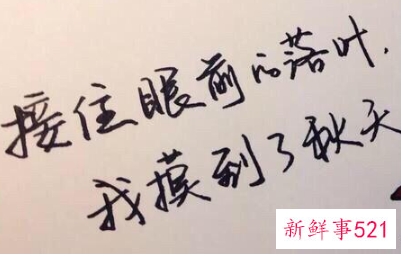 接住眼前的落叶，
我摸到了秋天
新鲜事521